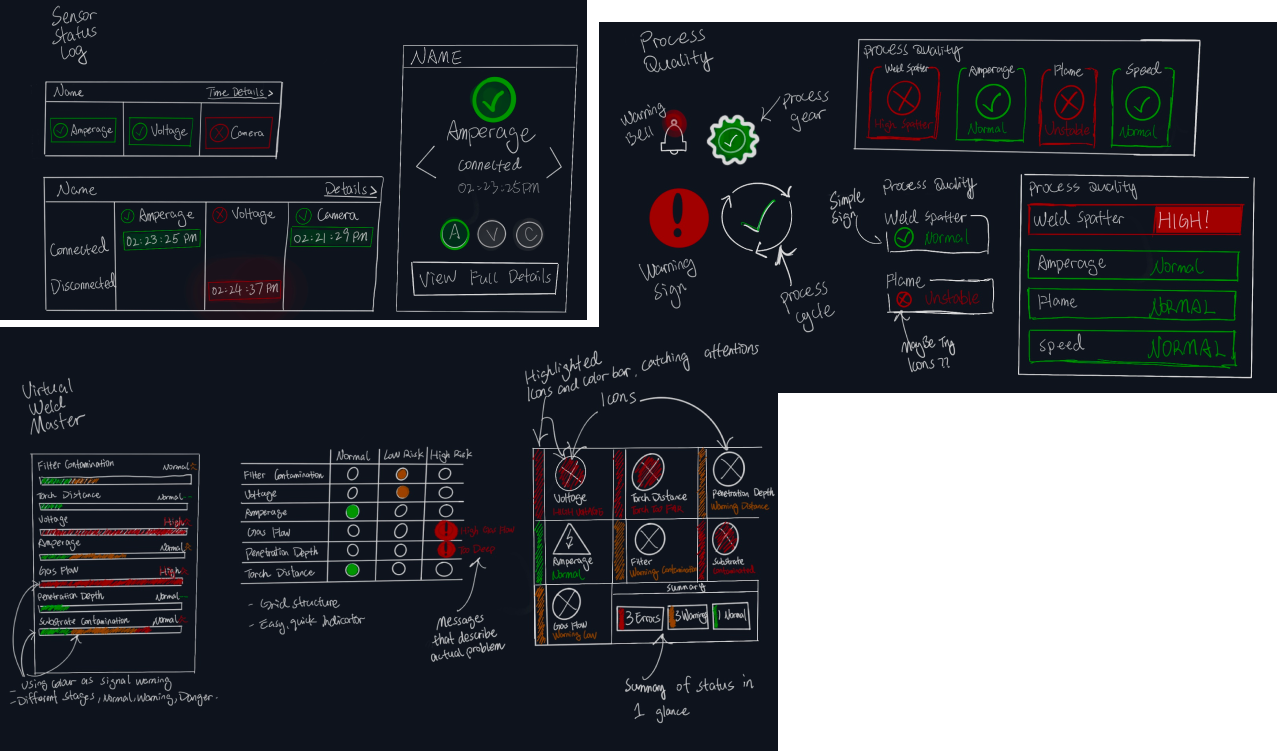 Sensor
Status
Log
Name
Time Details >
Amperage
Voltage
Camera
Name
Details >
Amperage
Voltage
Camera
Connected
02:23:25 PM
02:21:29 PM
Disconnected
02:24:37 PM
NAME
Amperage
Connected
02:23:25PM
A
V
C
View Full Details
Process
Quality
Warning
Bell
Process
gear
Warning
Sign
Process
cycle
Process Quality
Weld Spatter
High Spatter
Amperage
Normal
Flame
Unstable
Speed
Normal
Simple
Sign
Process Quality
Weld Spatter
Normal
Flame
Unstable
Maybe Try
Icons ??
Process Quality
Weld Spatter
HIGH!
Amperage
Normal
Flame
NORMAL
Speed
NORMAL
Virtual
Weld
Master
Filter Contamination
Normal
Torch Distance
Normal
Voltage
High
Amperage
Normal
Gas Flow
High
Penetration Depth
Normal
Substrate Contamination
Normal
- Using colour as signal warning
- Different stages, Normal, Warning, Danger.
Normal
Low Risk
High Risk
Filter Contamination
Voltage
Amperage
Gas Flow
High Gas Flow
Penetration Depth
Too Deep
Torch Distance
- Grid structure
- Easy, quick Indicator
Messages
that describe
actual problem
Highlighted
Icons and color bar, catching attentions
Icons
Voltage
Torch Distance
Torch Too FAR
Penetration Depth
Warning Distance
Amperage
Normal
Filter
Warning Contamination
Substrate
Contaminated
Gas Flow
Warning Low
Summary
3 Errors
3 Warning
1 Normal
Summary of status in
1 glance